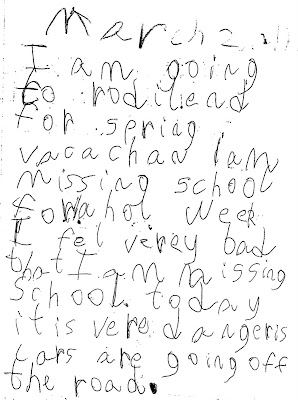 March 2
I am going
to rodilend
for spring
vacachan I am
missing school
for a hol week
I fel verey bad
that I am missing
school today
it is vere dangeris
cars are going off
the road.